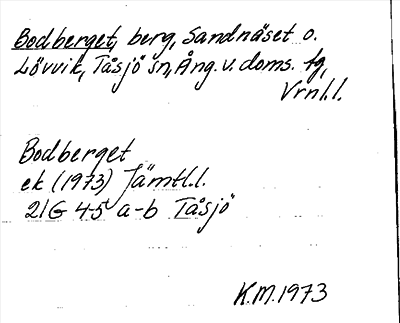 Bodberget, berg, Sandnäset o.
Lövvik, Tåsjö sn, Ång. v. doms. fg,
Vrnl.l.
Bodberget
ek (1973) Jämtl.l.
21G 4-5 a-b Tåsjö
K.M. 1973